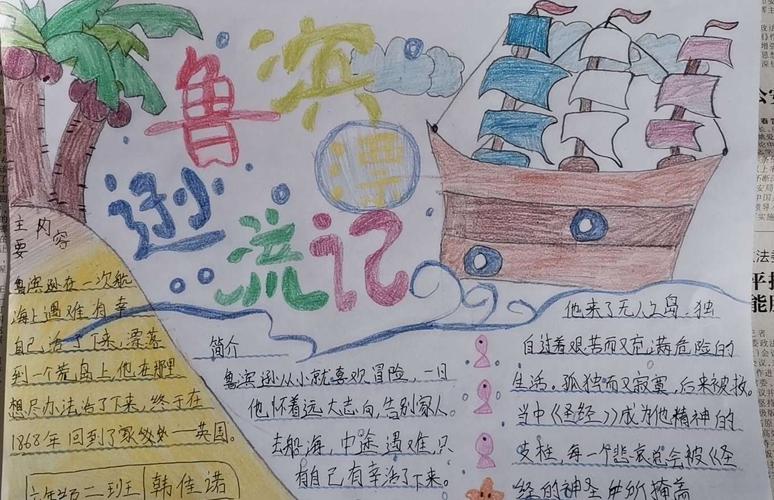 鲁滨
逊漂
流记
主要内容
鲁滨逊在一次航
海上遇难,有幸
自己活了下来,漂落
到一个荒岛上,他在那里
想尽办法活了下来,终于在
1868年回到了家
英国。
六年级二班 韩佳诺
简介
鲁滨逊从小就喜欢冒险,一日
他怀着远大志向,告别家人。
去船海,中途遇难,只
有自己有幸活了下来。
他来了无人之岛,独
自过着艰苦而又充满危险的
生活。孤独而又寂寞,后来被救。
当中《圣经》成为他精神的
支柱,每一个悲哀总会被《圣
经的神圣
掩着